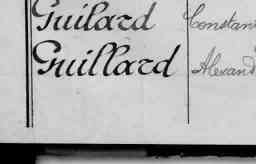 Guilard Constan
Guillard Alexand